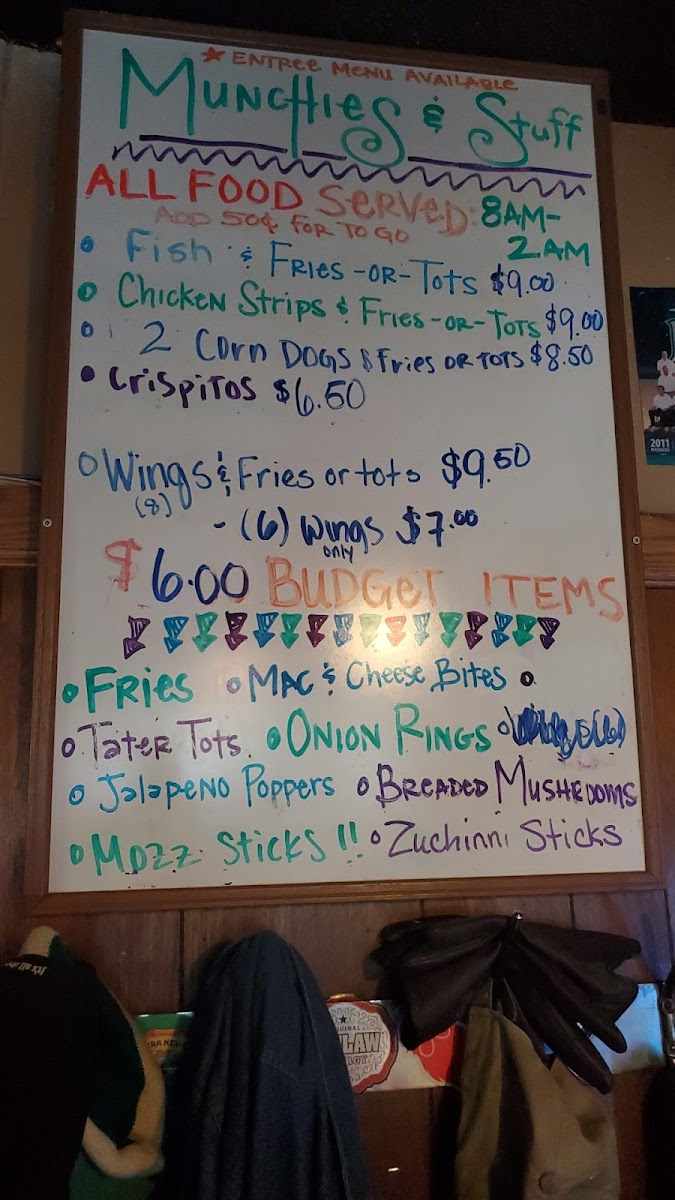 ★ ENTREE MENU AVAILABLE
MUNCHIES & Stuff
ALL FOOD SERVED: 8AM-
2AM
ADD 50¢ FOR TO GO
• Fish & FRIES -OR- TOTS $9.00
• CHICKEN STRIPS & FRIES -OR- TOTS $9.00
• 2 CORN DOGS & FRIES OR TOTS $8.50
• CRISPITOS $6.50
• Wings & Fries or tots $9.50
(8)
- (6) wings $7.00
only
$6.00 BUDGET ITEMS
• FRIES • MAC & Cheese Bites •
• Tater Tots • ONION RINGS •
• Jalapeno Poppers • BREADED MUSHROOMS
• Mozz Sticks !! • Zuchinni Sticks
2011
LAW